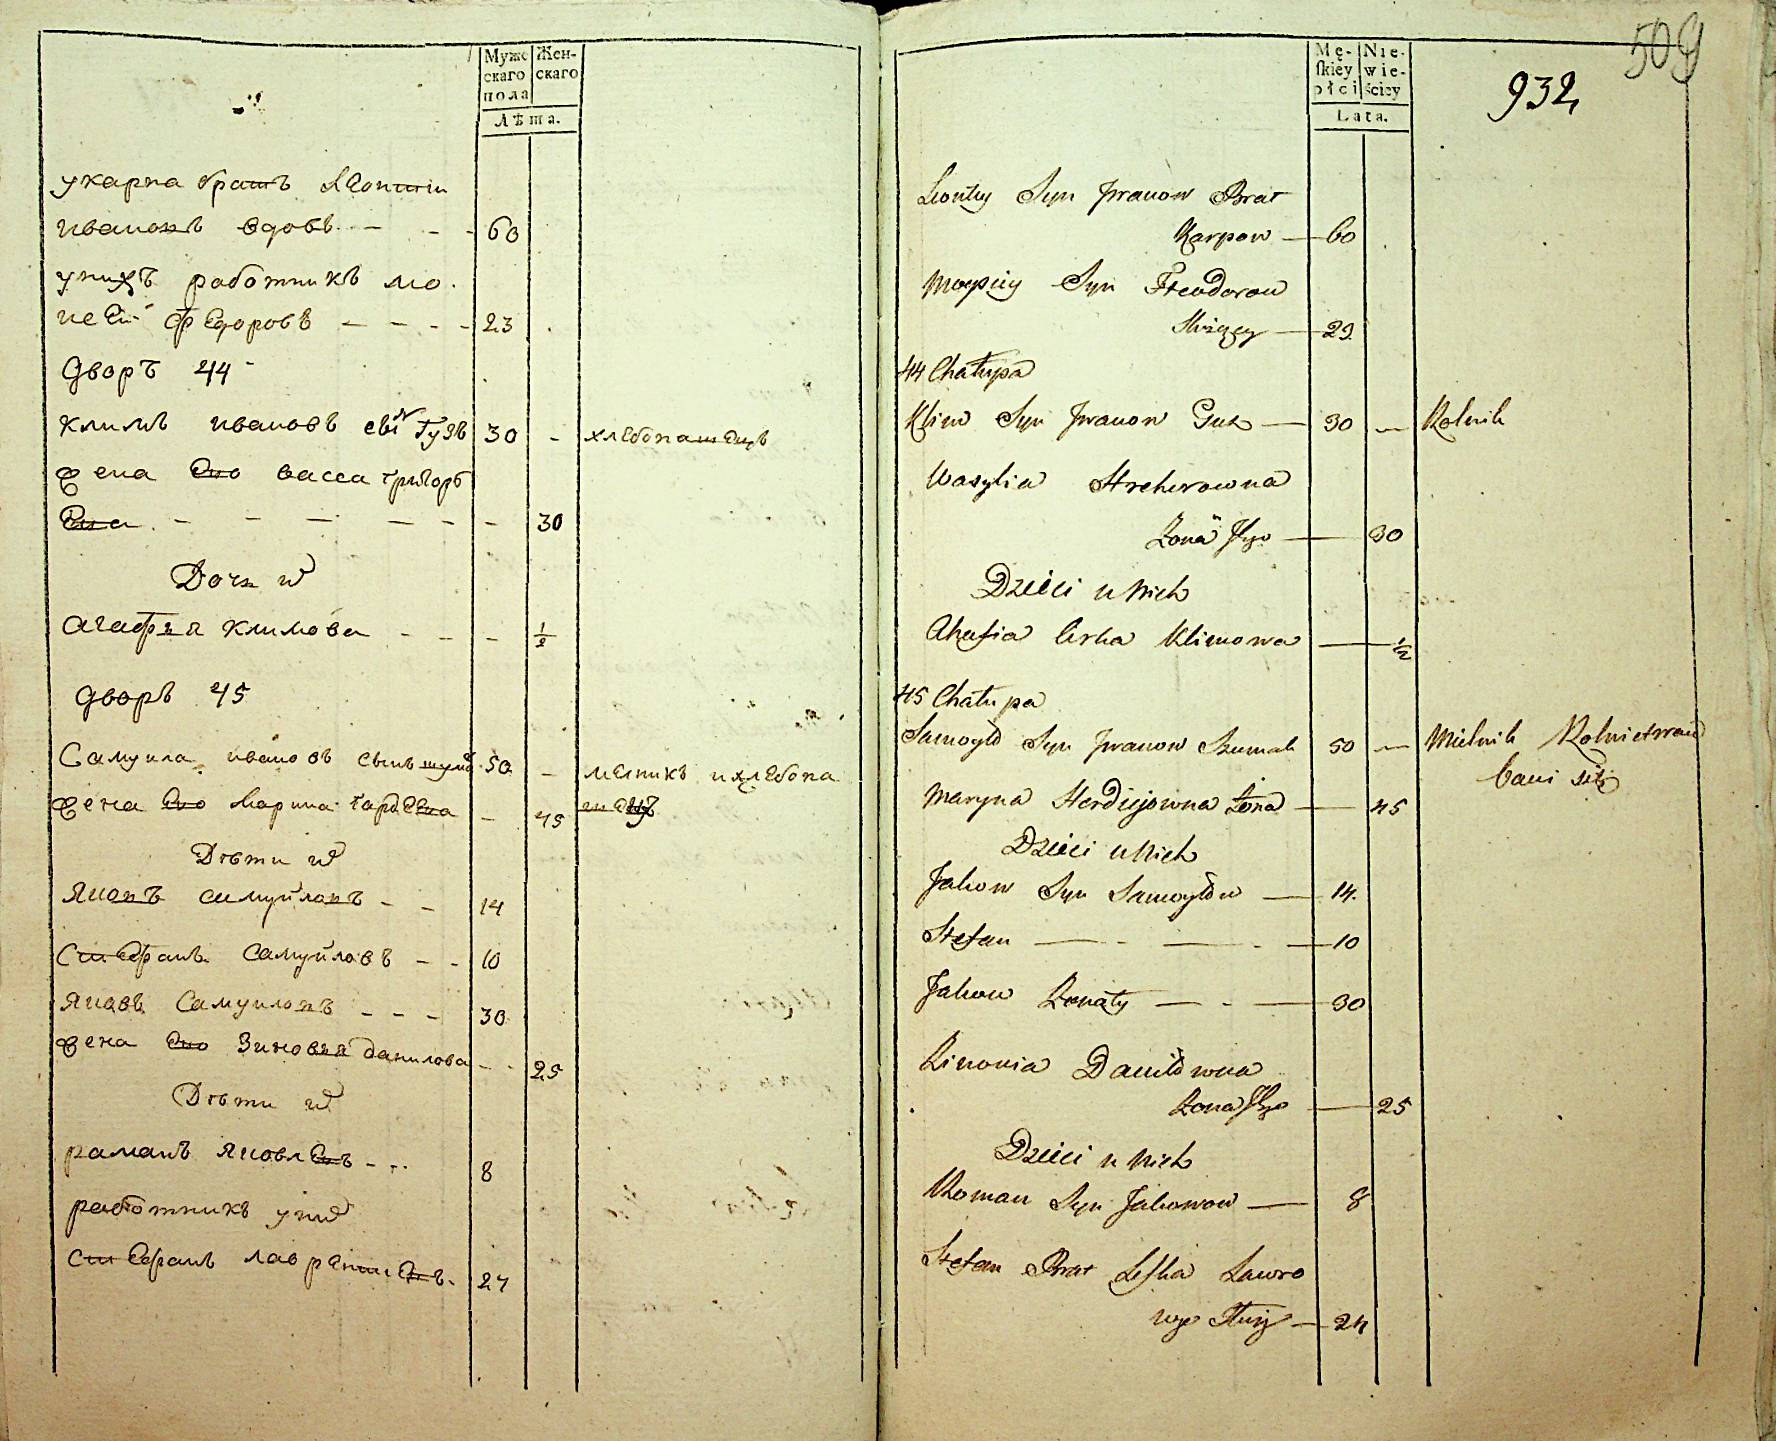 Муже
скаго
пола
Жен-
скаго
Лѣта.
укарпа братъ Леонтіи
ивановъ вдовъ - - - 60
унихъ работникъ мо
исеи федоровъ - - - - 23
Дворъ 44
климъ ивановъ сынъ Гузъ 30 - хлебопашецъ
жена Его васса григорь
Ева - - - - - - 30
Дочь
агафья климова - - - 1/2
дворъ 45
Самуила ивановъ сынъ 50 - мелникъ ихлебопа
жена Его Марина гордеева - 45 шецъ
Дѣти
Яковъ самуиловъ - - 14
Стефанъ Самуиловъ - - 10
Яковъ Самуиловъ - - - 30
жена Его Зиновья данилова - - 25
Дѣти
раманъ яковлевъ - - 8
работникъ
Стефанъ лаврентиевъ - 24
509
932
Mę-
skiey
płci
Nie-
wie-
ściey
Lata.
Leonty Syn Jwanow Brat
Karpow — 60
Moysiey Syn Fteodorow
Służący — 23
44 Chałupa
Klim Syn Jwanow Guz — 30 — Rolnik
Wasylia Hrehorowna
Żona Jego — 30
Dzieci u Nich
Ahafia Corka Klimowa — 1/2
45 Chałupa
Samoyło Syn Jwanow Szumak 50 — Mielnik Rolnictwem
bawi się
Maryna Hordiejowna Żona — 45
Dzieci u Nich
Jakow Syn Samoyłow — 14
Stefan — - — - — 10
Jakow Żonaty — - — 30
Zinowia Daniłowna
Żona Jego — 25
Dzieci u Nich
Roman Syn Jakowow — 8
Stefan Lawro
— 24